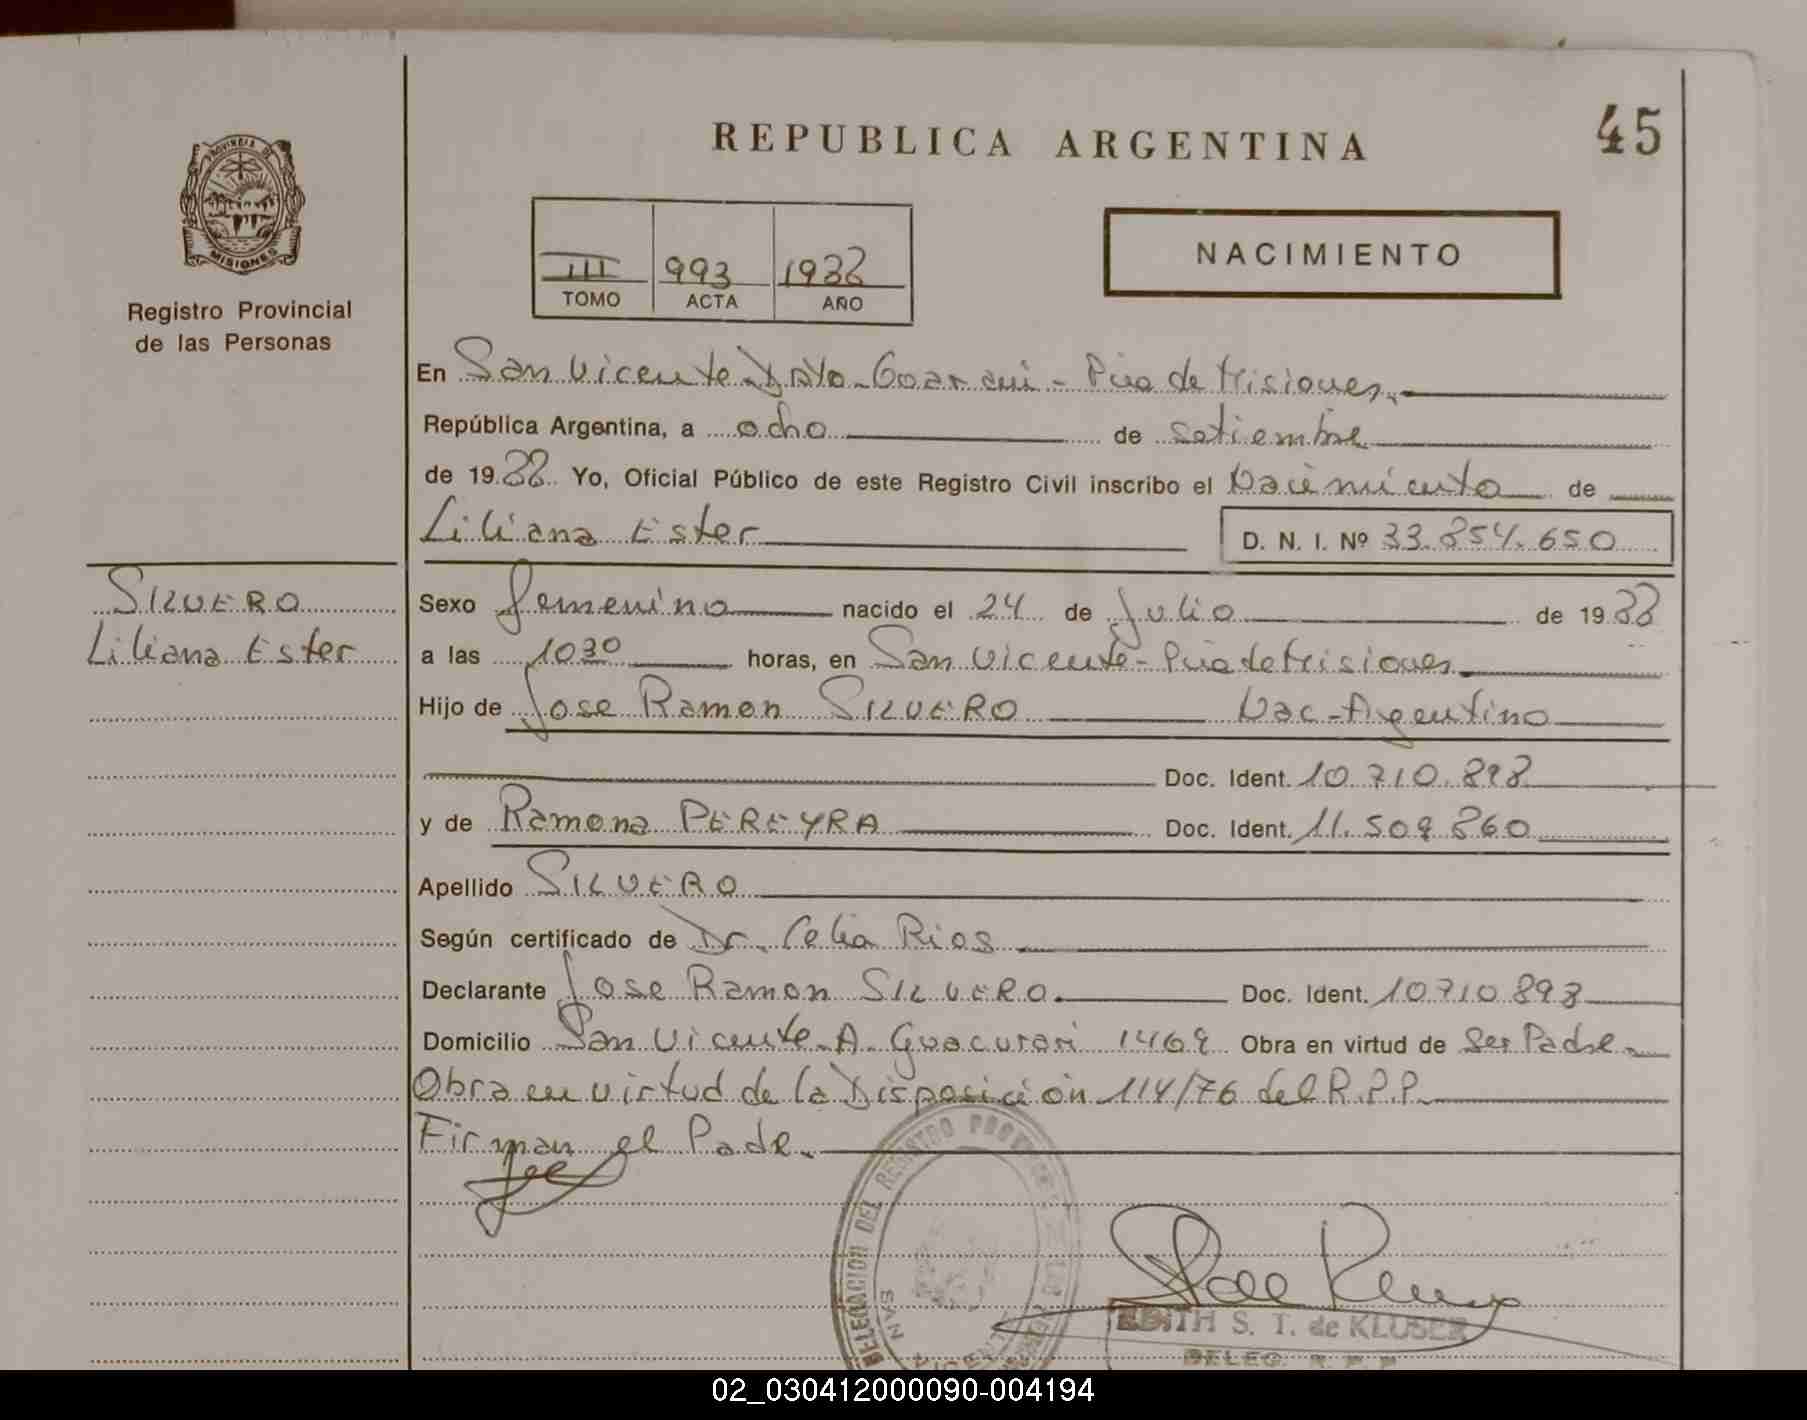 REPUBLICA ARGENTINA
45
PROVINCIA DE
MISIONES
Registro Provincial
de las Personas
III 993 1988
TOMO ACTA AÑO
NACIMIENTO
En San Vicente Dpto. Guarani - Pcia de Misiones.
República Argentina, a ocho de setiembre
de 1988 Yo, Oficial Público de este Registro Civil inscribo el Nacimiento de
Liliana Ester D. N. I. Nº 33.854.650
SILVERO
Liliana Ester
Sexo femenino nacido el 24 de Julio de 1988
a las 10 30 horas, en San Vicente - Pcia de Misiones.
Hijo de Jose Ramon SILVERO Nac - Argentino
Doc. Ident. 10.710.898
y de Ramona PEREYRA Doc. Ident. 11.509.860
Apellido SILVERO
Según certificado de Dr. Celia Rios
Declarante Jose Ramon SILVERO. Doc. Ident. 10.710.898
Domicilio San Vicente - A. Guacurari 1469 Obra en virtud de Ser Padre
Obra en virtud de la Disposición 114/76 del R.P.P.
Firman el Padre.
DELEGACION DEL REGISTRO
SAN VICENTE
EDITH S. T. de KLUSER
DELEG. R. P. P.
02_030412000090-004194